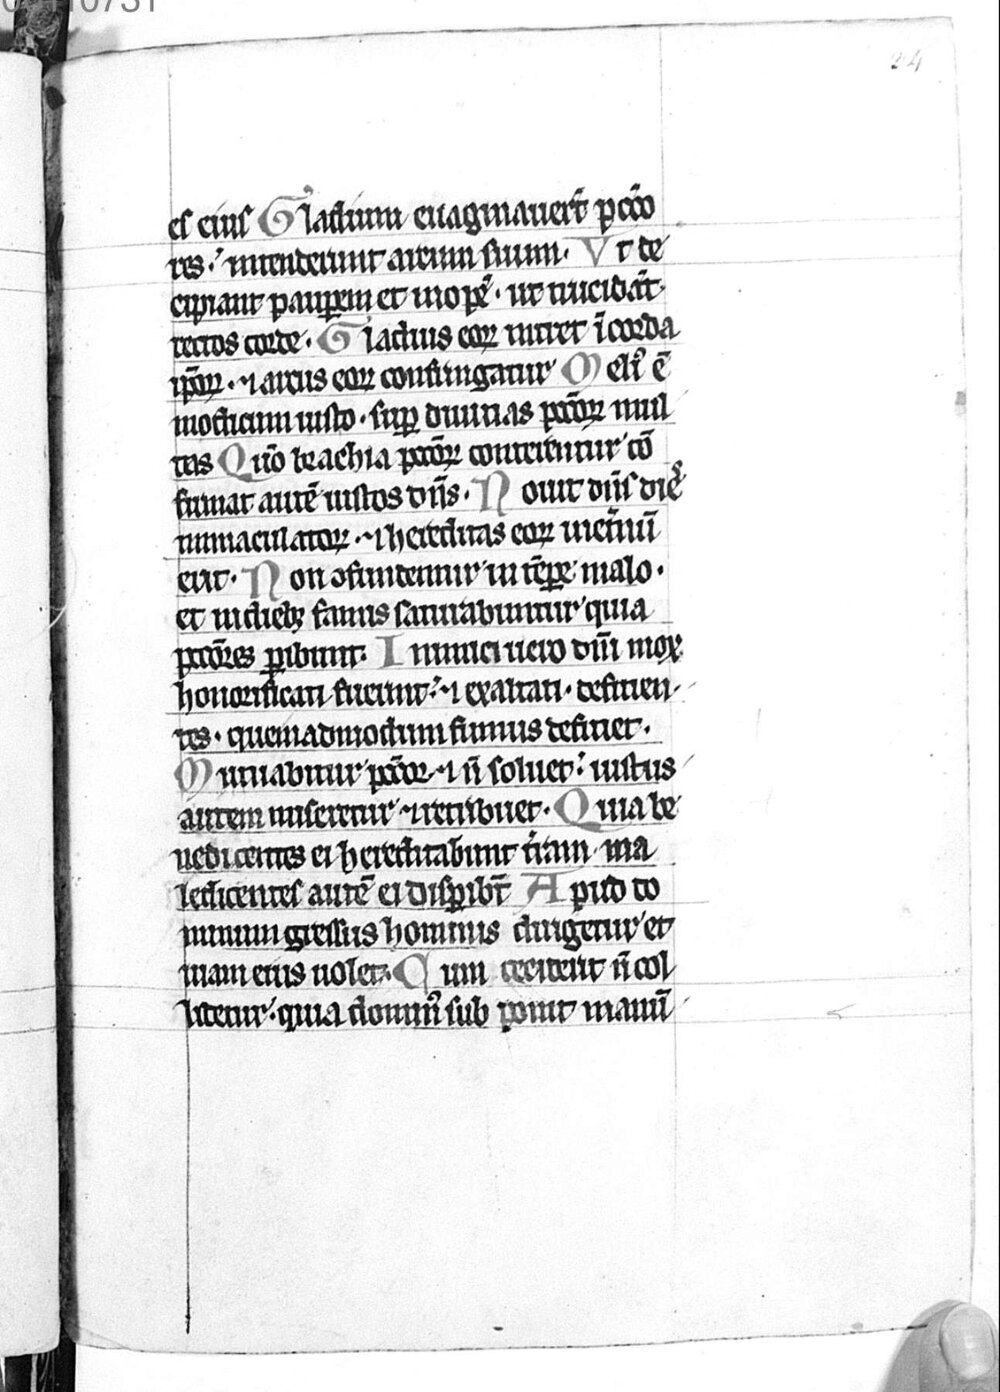 24
es eius Gladium euaginauer̄t pcc̄o
res. intenderunt arcum suum. Vt de
cipiant pauꝑem et inopē. ut trucidēt
rectos corde. Gladius eoꝝ intret ī corda
ip̄oꝝ. ⁊ arcus eoꝝ confringatur Meliꝰ ē
modicum iusto. suꝑ diuitias pcc̄oꝝ mul
tas Qm̄o brachia pcc̄oꝝ conterentur cō
firmat autē iustos dn̄s. Nouit dn̄s dies
inmaculatoꝝ. ⁊ hereditas eoꝝ in et̄nū
erit. Non ↄfundentur in tēꝑe malo.
et in diebꝫ famis saturabuntur quia
pcc̄ores ꝑibunt. Inimici uero dn̄i mox
honorificati fuerint ⁊ exaltati. deficien
tes. quemadmodum fumus deficiet.
Mutuabitur pcc̄or ⁊ n̄ soluet. iustus
autem miseretur ⁊ retribuet. Quia be
nedicentes ei hereditabunt t̄ram ma
ledicentes autē ei disꝑibūt Apud do
minum gressus hominis dirigetur et
uiam eius uolet. Cum ceciderit n̄ col
lidetur. quia dominꝰ sub ponit manū